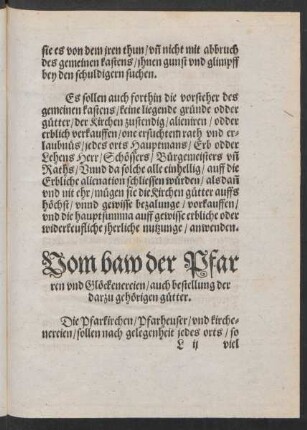 sie es von dem jren thun/vñ nicht mit abbruch
des gemeinen kastens/jhnen gunst vnd glimpff
bey den schuldigern suchen.
Es sollen auch forthin die vorsteher des
gemeinen kastens/keine liegende gründe odder
gütter/der Kirchen zustendig/alieniren/odder
erblich verkauffen/one ersuchtem rath vnd er-
laubnüs/jedes orts Hauptmans/Erb odder
Lehens Herr/Schössers/Bürgemeisters vñ
Raths/Vnnd da solche alle einhellig/auff die
Erbliche alienation schliessen würden/als dañ
vnd nit ehr/mügen sie die Kirchen gütter auffs
höchst/vnnd gewisse bezalunge/vorkauffen/
vnd die hauptsumma auff gewisse erbliche oder
widerkeufliche jherliche nutzunge/anwenden.
Vom baw der Pfar
ren vnd Glöckenereien/auch bestellung der
darzu gehörigen gütter.
Die Pfarkirchen/Pfarheuser/vnd kirche-
nereien/sollen nach gelegenheit jedes orts/so
L ij viel